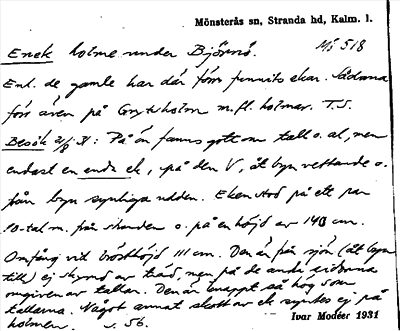 Mönsterås sn, Stranda hd, Kalm. l.
Enek holme under Björnö. Mö 518
Enl. de gamle har där förr funnits ekar. Sådana
förr även på Grytsholm m.fl. holmar. T.S.
Besök 2/8 31: På ön fanns gott om tall o. al, men
endast en enda ek, på den V, åt byn vettande o.
från byn synliga udden. Eken stod på ett par
10-tal m. från stranden o. på en höjd av 140 cm.
Omfång vid brösthöjd 111 cm. Den är från sjön (åt byn
till) ej skymd av träd, men på de andra sidorna
omgiven av tallar. Den är knappt så hög som
tallarna. Något annat skott av ek syntes ej på
holmen. s. 56.
Ivar Modéer 1931